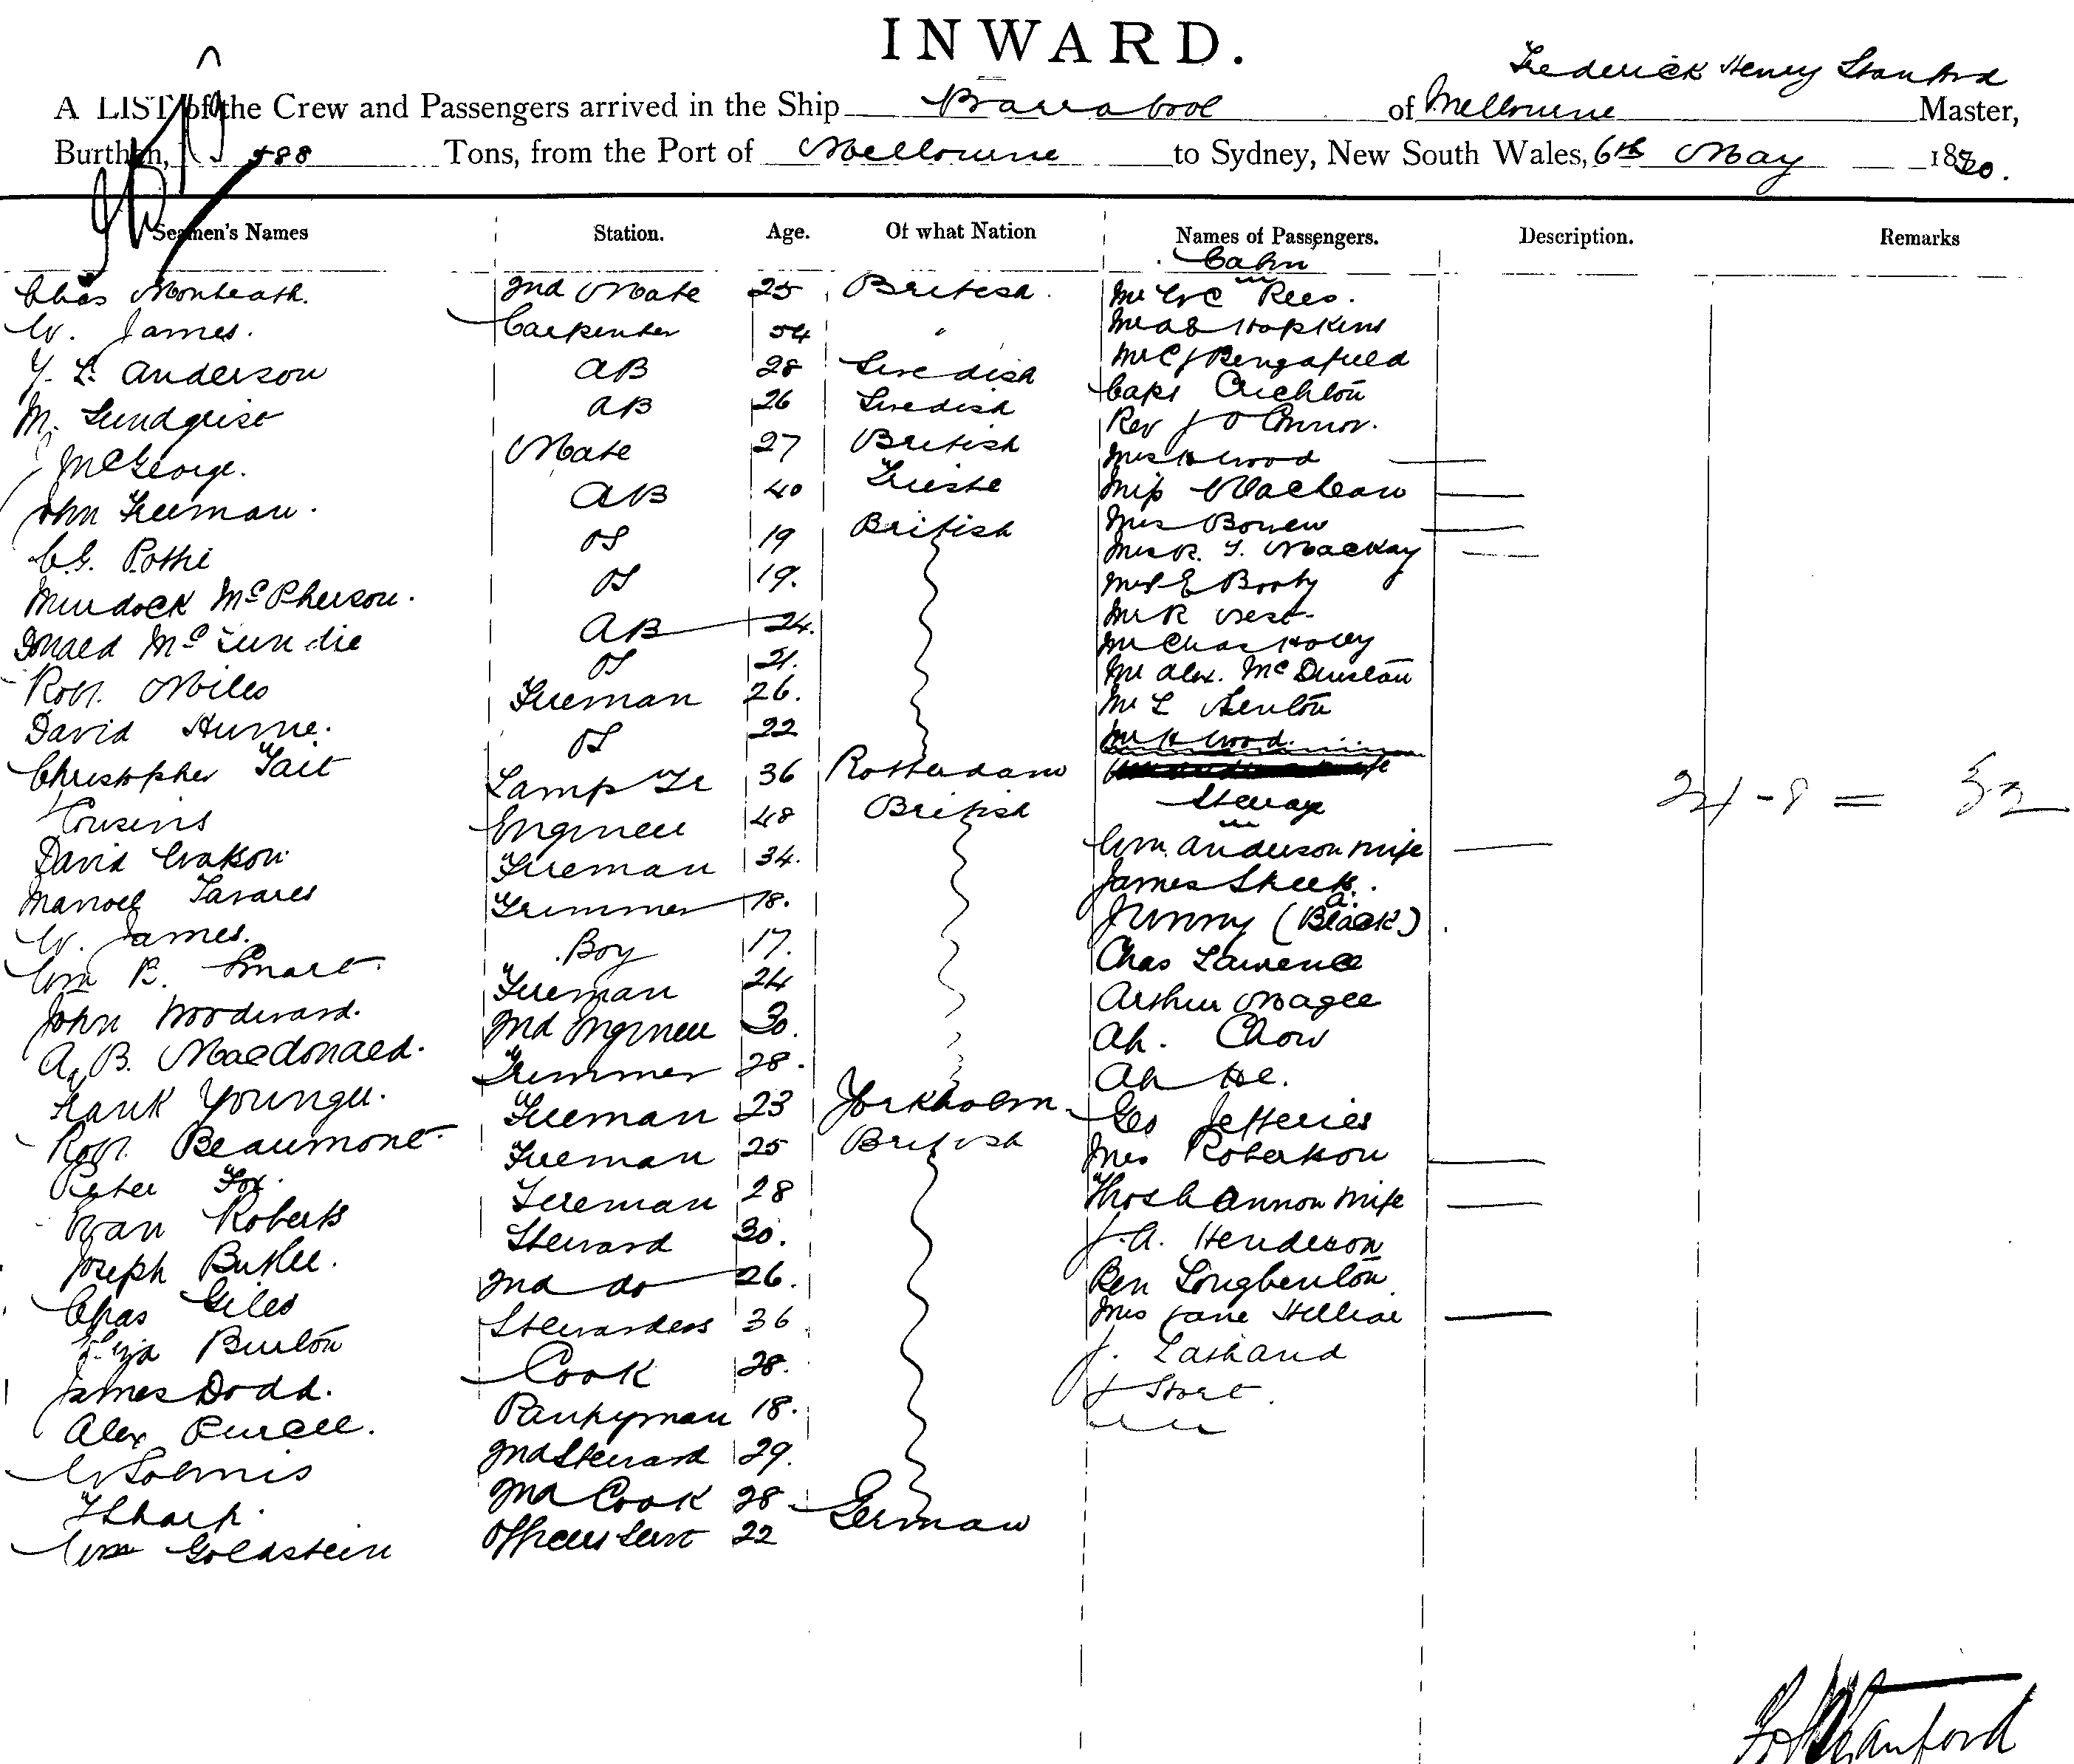 INWARD.
Frederick Henry Stanford
A LIST of the Crew and Passengers arrived in the Ship Barrabool of Melbourne Master,
Burthen, 488 Tons, from the Port of Melbourne to Sydney, New South Wales, 6th May 1880.
Seamen's Names Station. Age. Of what Nation Names of Passengers. Description. Remarks
Cabin
Chas Monteath. 2nd Mate 25 British. Mr W C Rees.
W. James. Carpenter 54 " Mr A E Hopkins
Y. L. Anderson AB 28 Swedish Mr C J Bengafield
M. Lundqvist AB 26 Swedish Capt Crichton
J McGeorge. Mate 27 British Rev J O Connor.
John Freeman. AB 40 Trieste Mrs H Wood
C. G. Pottie OS 19 British Miss Maclean
Murdock McPherson. OS 19. Mrs Bowen
Donald McLundie AB 24. Mrs R. T. Mackay
Robt. Miles OS 21. Mrs E Booty
David Hume. Fireman 26. Mr R West
Christopher Tait OS 22 Mr Chas Holly
Cousins Lamp Tr 36 Rotterdam Mr Alex. McDunstan
David Watson Engineer 48 British Mr L Benton
Manoel Tavares Fireman 34. Mr H Wood.
W. James. Trimmer 18. Steerage
Wm R. Smart. Boy 17. Wm. Anderson wife
John Woodward. Fireman 24 James Skeek.
A. B. Macdonald. 2nd Engineer 30. Jimmy (A. Black)
Frank Younger. Trimmer 28. Chas Lawrence
Robt. Beaumont. Fireman 23 Yorkholm. Arthur Magee
Peter Fox. Fireman 25 British Ah. Chow
Evan Roberts Fireman 28 Ah He.
Joseph Butler. Steward 30. Geo Jefferies
Chas Giles 2nd do 26. Mrs Robertson
Eliza Burton Stewardess 36 Thos Cannon wife
James Dodd. Cook 28. J. A. Henderson
Alex Purcell. Pantryman 18. Ben Longbenton
2nd Steward 29. Mrs Jane Hilliar
T Sharp. 2nd Cook 28
Wm Goldstein Officers Servt 22 German J Stort
24-8 = 32
F H Stanford